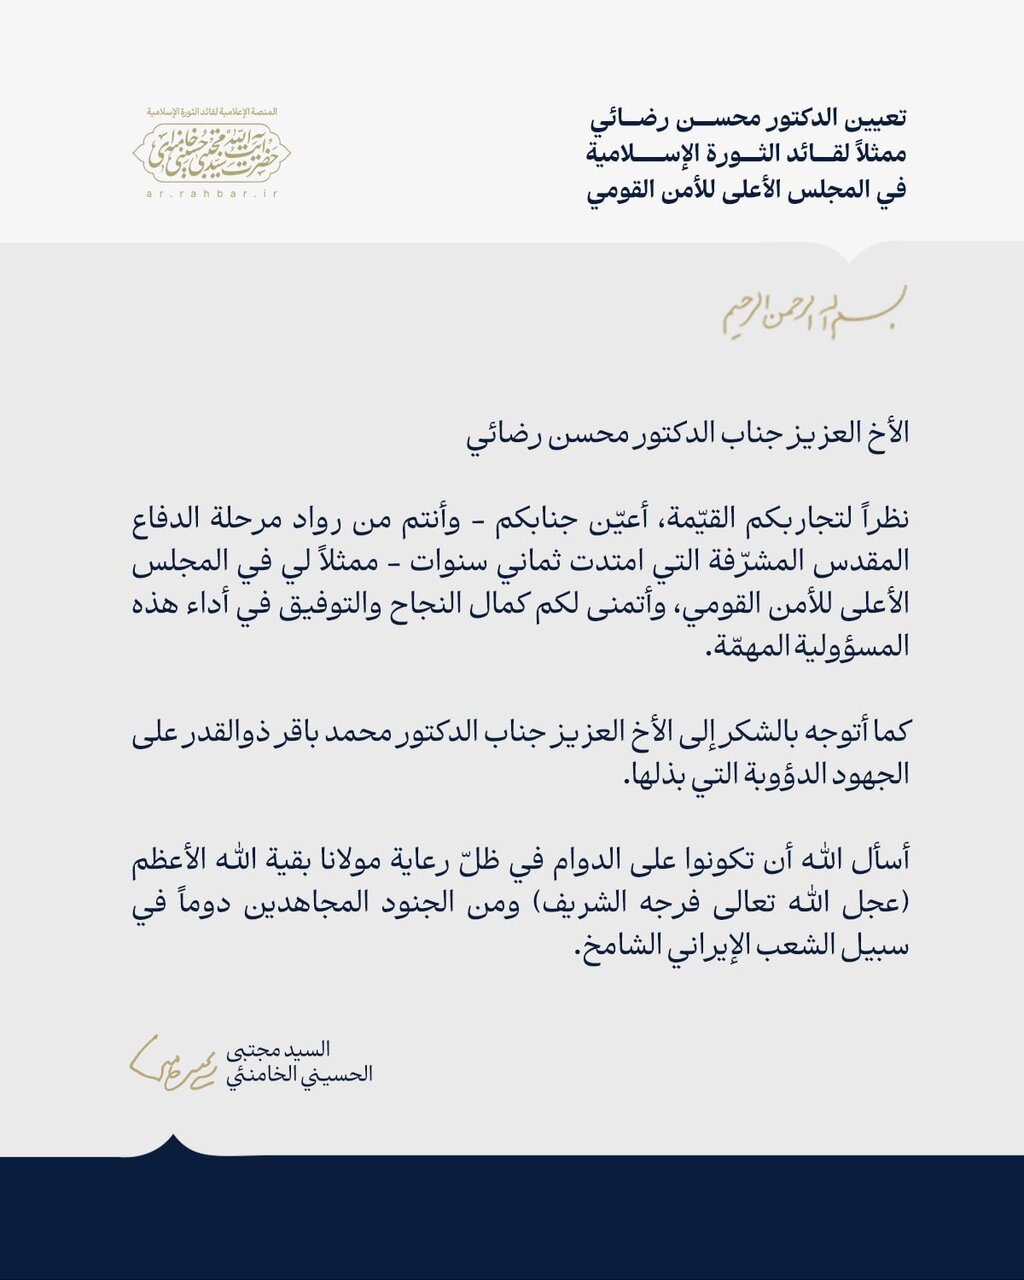 تعيين الدكتور محسن رضائي
ممثلاً لقائد الثورة الإسلامية
في المجلس الأعلى للأمن القومي
المنصة الإعلامية لقائد الثورة الإسلامية
حضرت آیت الله سید مجتبی حسینی خامنه‌ای
ar.rahbar.ir
بسم الله الرحمن الرحيم
الأخ العزيز جناب الدكتور محسن رضائي
نظراً لتجاربكم القيّمة، أعيّن جنابكم – وأنتم من رواد مرحلة الدفاع
المقدس المشرّفة التي امتدت ثماني سنوات – ممثلاً لي في المجلس
الأعلى للأمن القومي، وأتمنى لكم كمال النجاح والتوفيق في أداء هذه
المسؤولية المهمّة.
كما أتوجه بالشكر إلى الأخ العزيز جناب الدكتور محمد باقر ذوالقدر على
الجهود الدؤوبة التي بذلها.
أسأل الله أن تكونوا على الدوام في ظلّ رعاية مولانا بقية الله الأعظم
(عجل الله تعالى فرجه الشريف) ومن الجنود المجاهدين دوماً في
سبيل الشعب الإيراني الشامخ.
السيد مجتبى
الحسيني الخامنئي